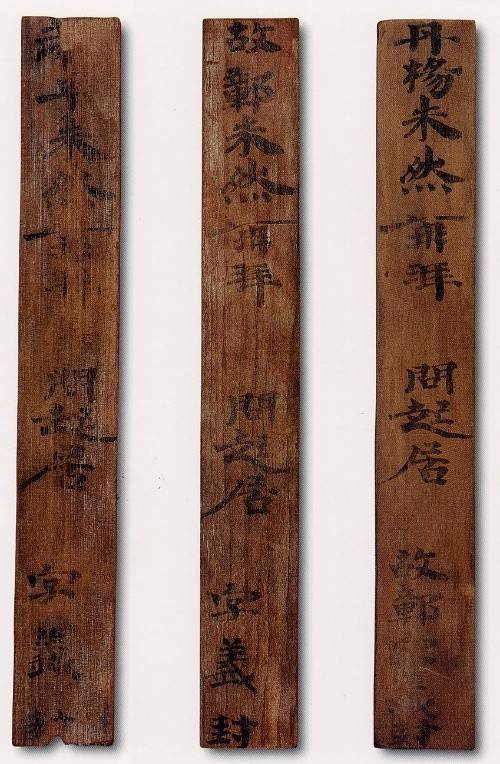 丹楊朱然再拜　問起居　故鄣字義封
故鄣朱然再拜　問起居　字義封
朱然再拜　問起居　字義封